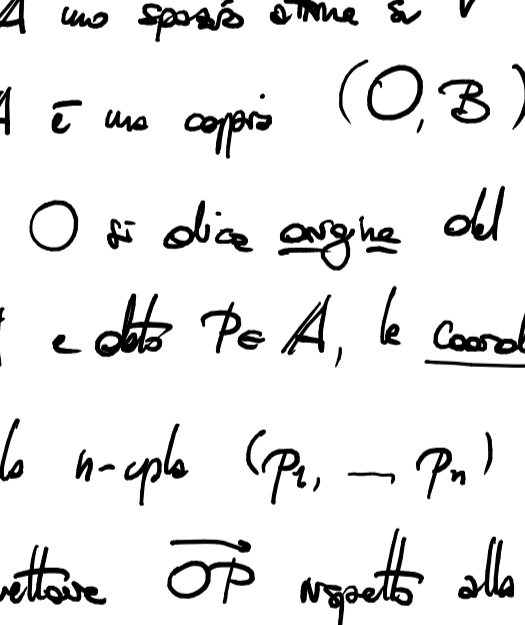 A uno spazio affine su V
A è una coppia (O, B)
O si dice origine del
e dato P ∈ A, le coord
la n-upla (p₁, — pₙ)
vettore \overrightarrow{OP} rispetto alla